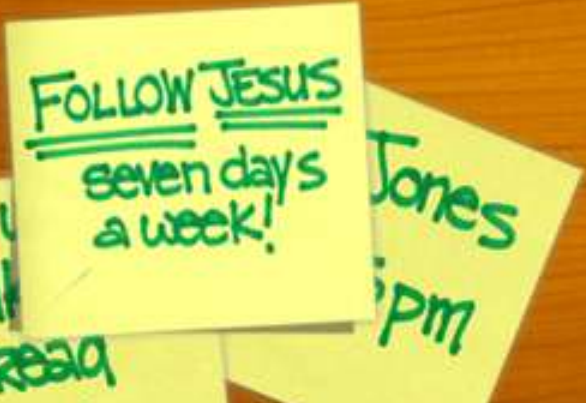 FOLLOW JESUS
seven days
a week!
Jones
pm